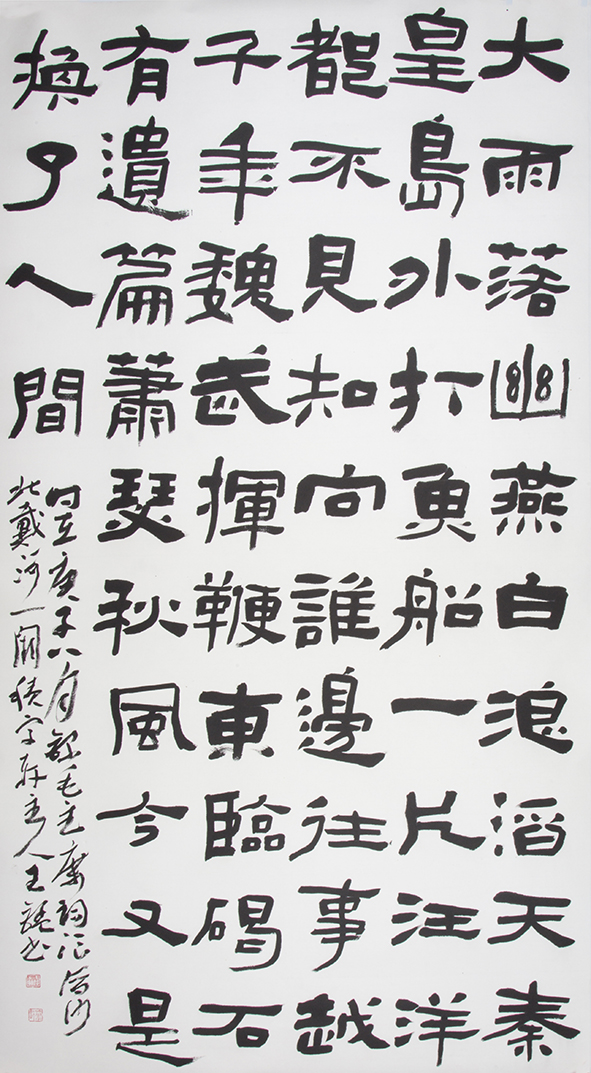 大雨落幽燕白浪滔天秦
皇島外打魚船一片汪洋
都不見知向誰邊往事越
千年魏武揮鞭東臨碣石
有遺篇蕭瑟秋風今又是
換了人間
时在庚子八月錄毛主席词浪淘沙
北戴河一阕主人王书